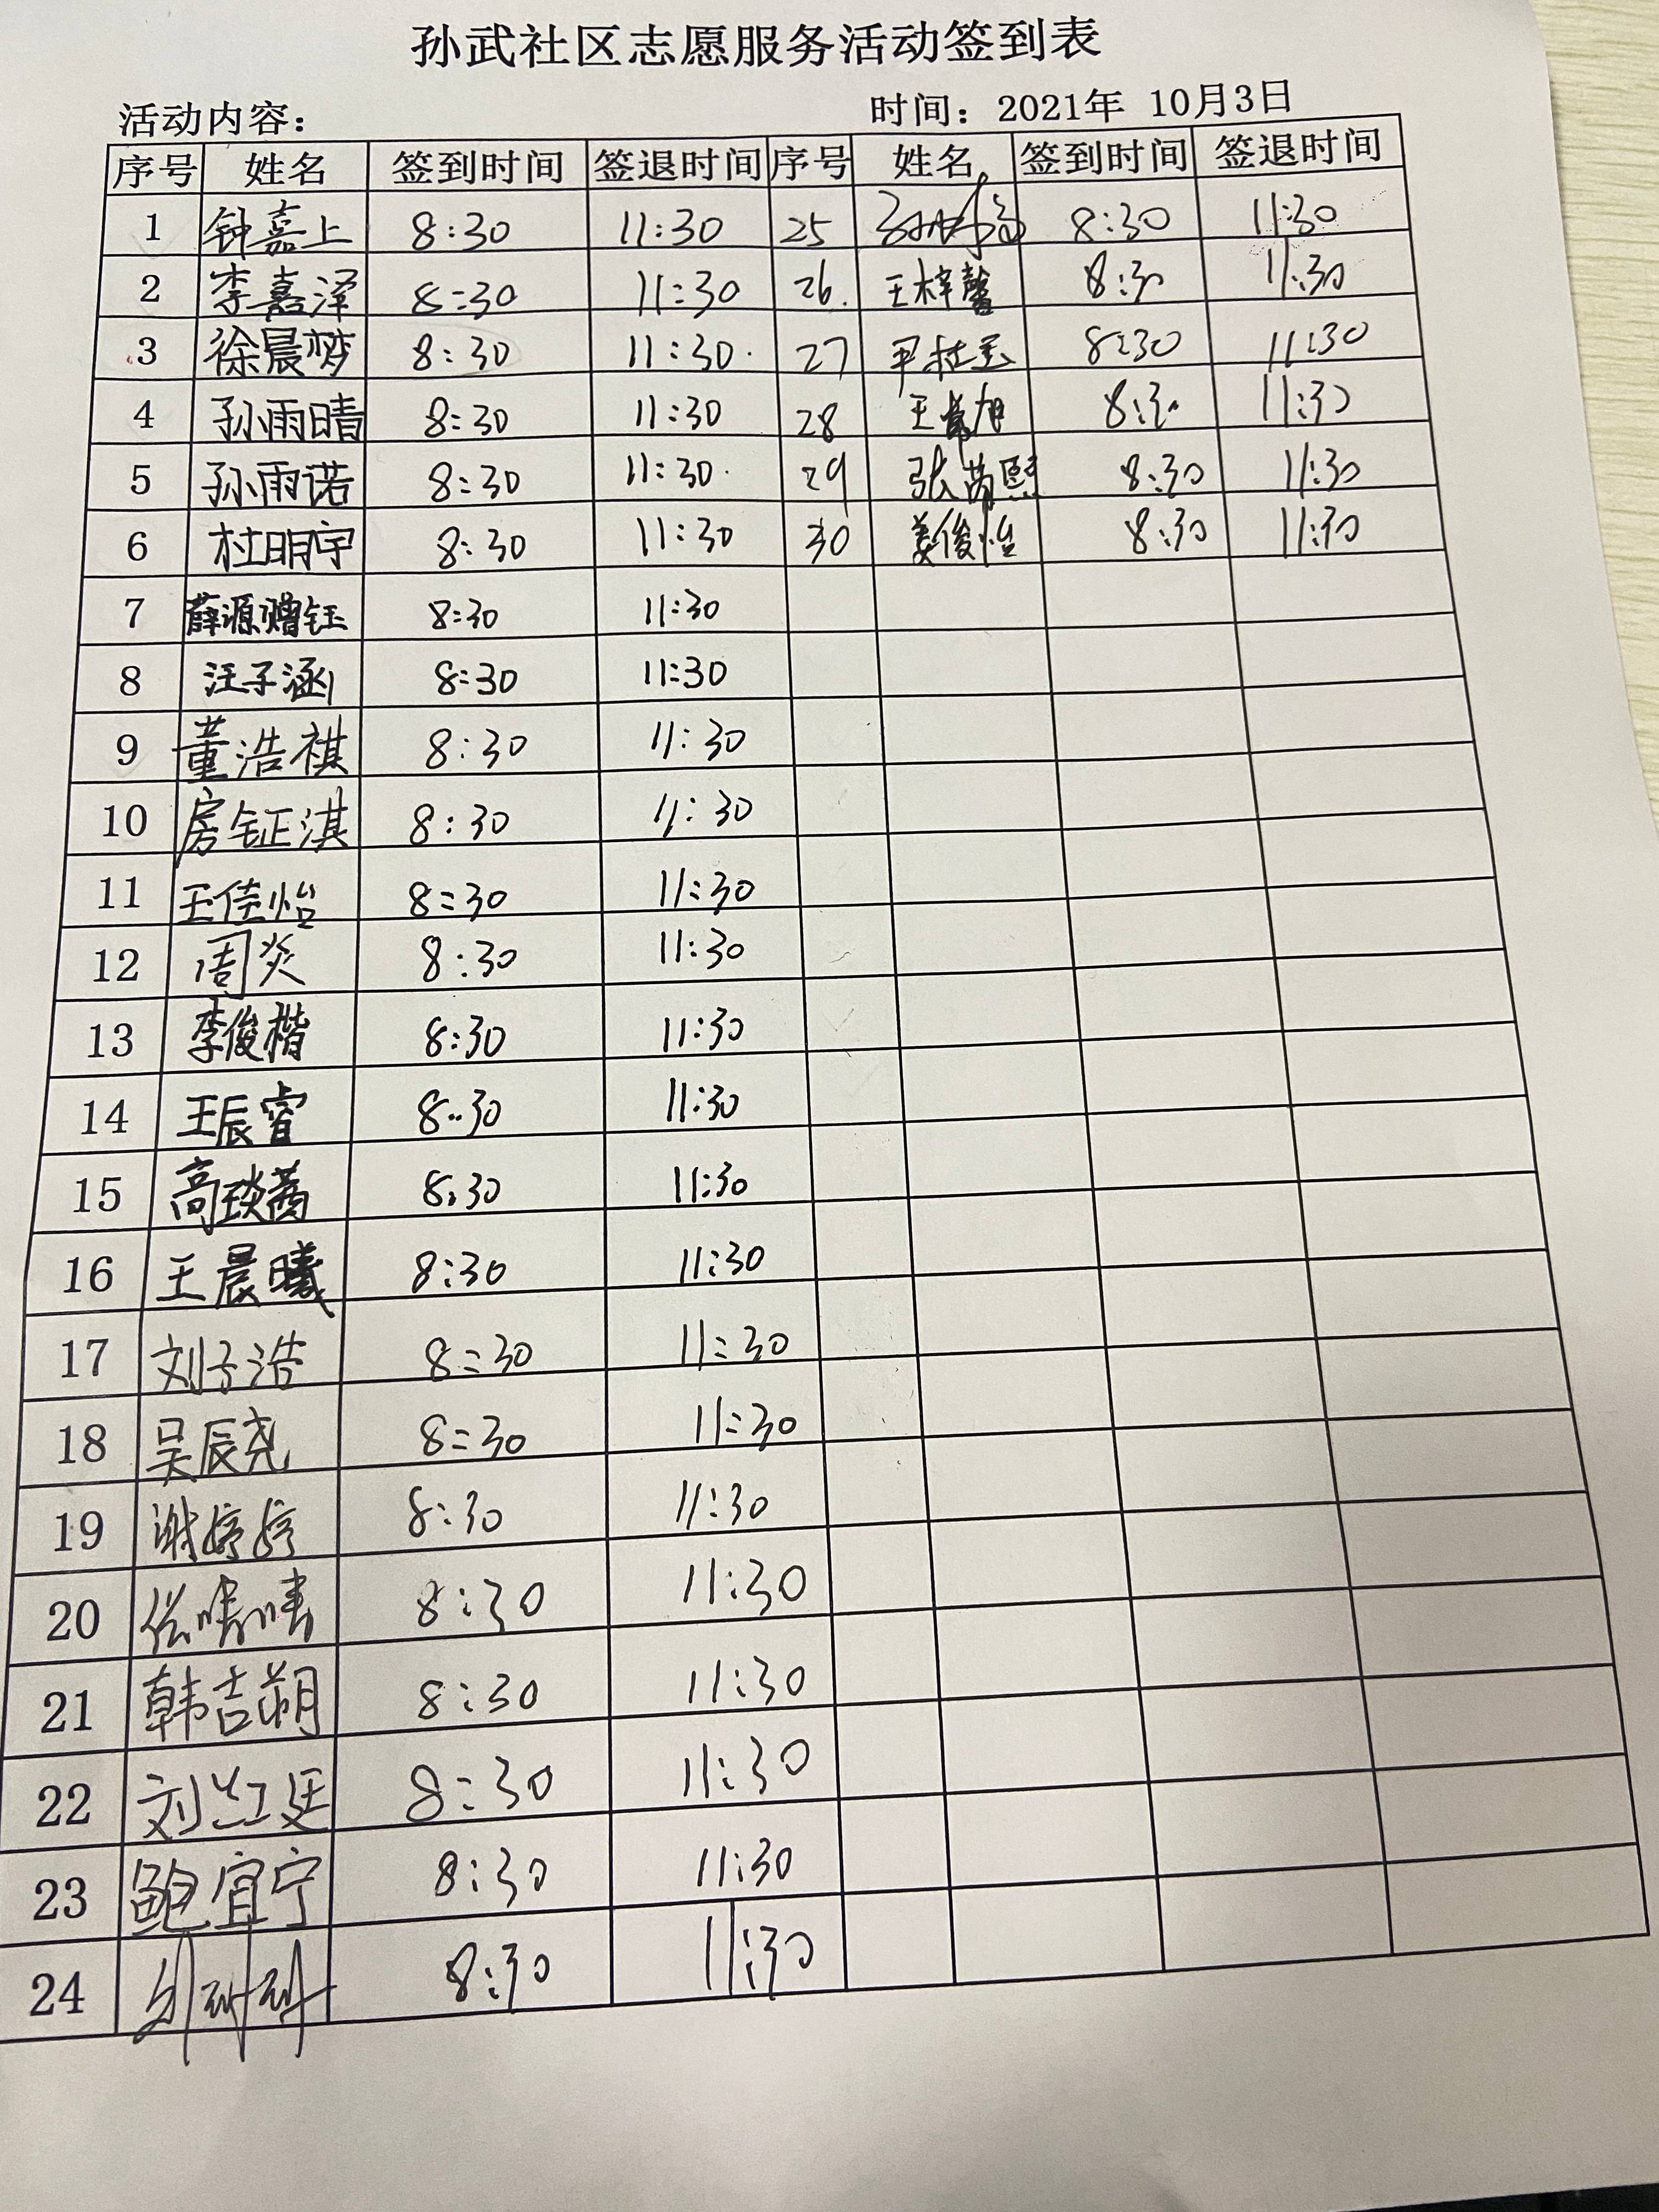 孙武社区志愿服务活动签到表
活动内容： 时间：2021年 10月3日
序号 姓名 签到时间 签退时间 序号 姓名 签到时间 签退时间
1 钟嘉上 8:30 11:30 25 8:30 11:30
2 李嘉泽 8:30 11:30 26. 王梓馨 8:30 11:30
3 徐晨梦 8:30 11:30. 27 8:30 11:30
4 孙雨晴 8:30 11:30 28 王 旭 8:30 11:30
5 孙雨诺 8:30 11:30. 29 张芮熙 8:30 11:30
6 杜明宇 8:30 11:30 30 姜俊怡 8:30 11:30
7 薛源赠钰 8:30 11:30
8 汪子涵 8:30 11:30
9 董浩祺 8:30 11:30
10 房钲淇 8:30 11:30
11 王佳怡 8:30 11:30
12 周炎 8:30 11:30
13 李俊楷 8:30 11:30
14 王辰睿 8:30 11:30
15 高琰茜 8:30 11:30
16 王晨曦 8:30 11:30
17 刘子浩 8:30 11:30
18 吴辰尧 8:30 11:30
19 谢婷婷 8:30 11:30
20 8:30 11:30
21 韩吉朔 8:30 11:30
22 刘 廷 8:30 11:30
23 鲍宜宁 8:30 11:30
24 8:30 11:30